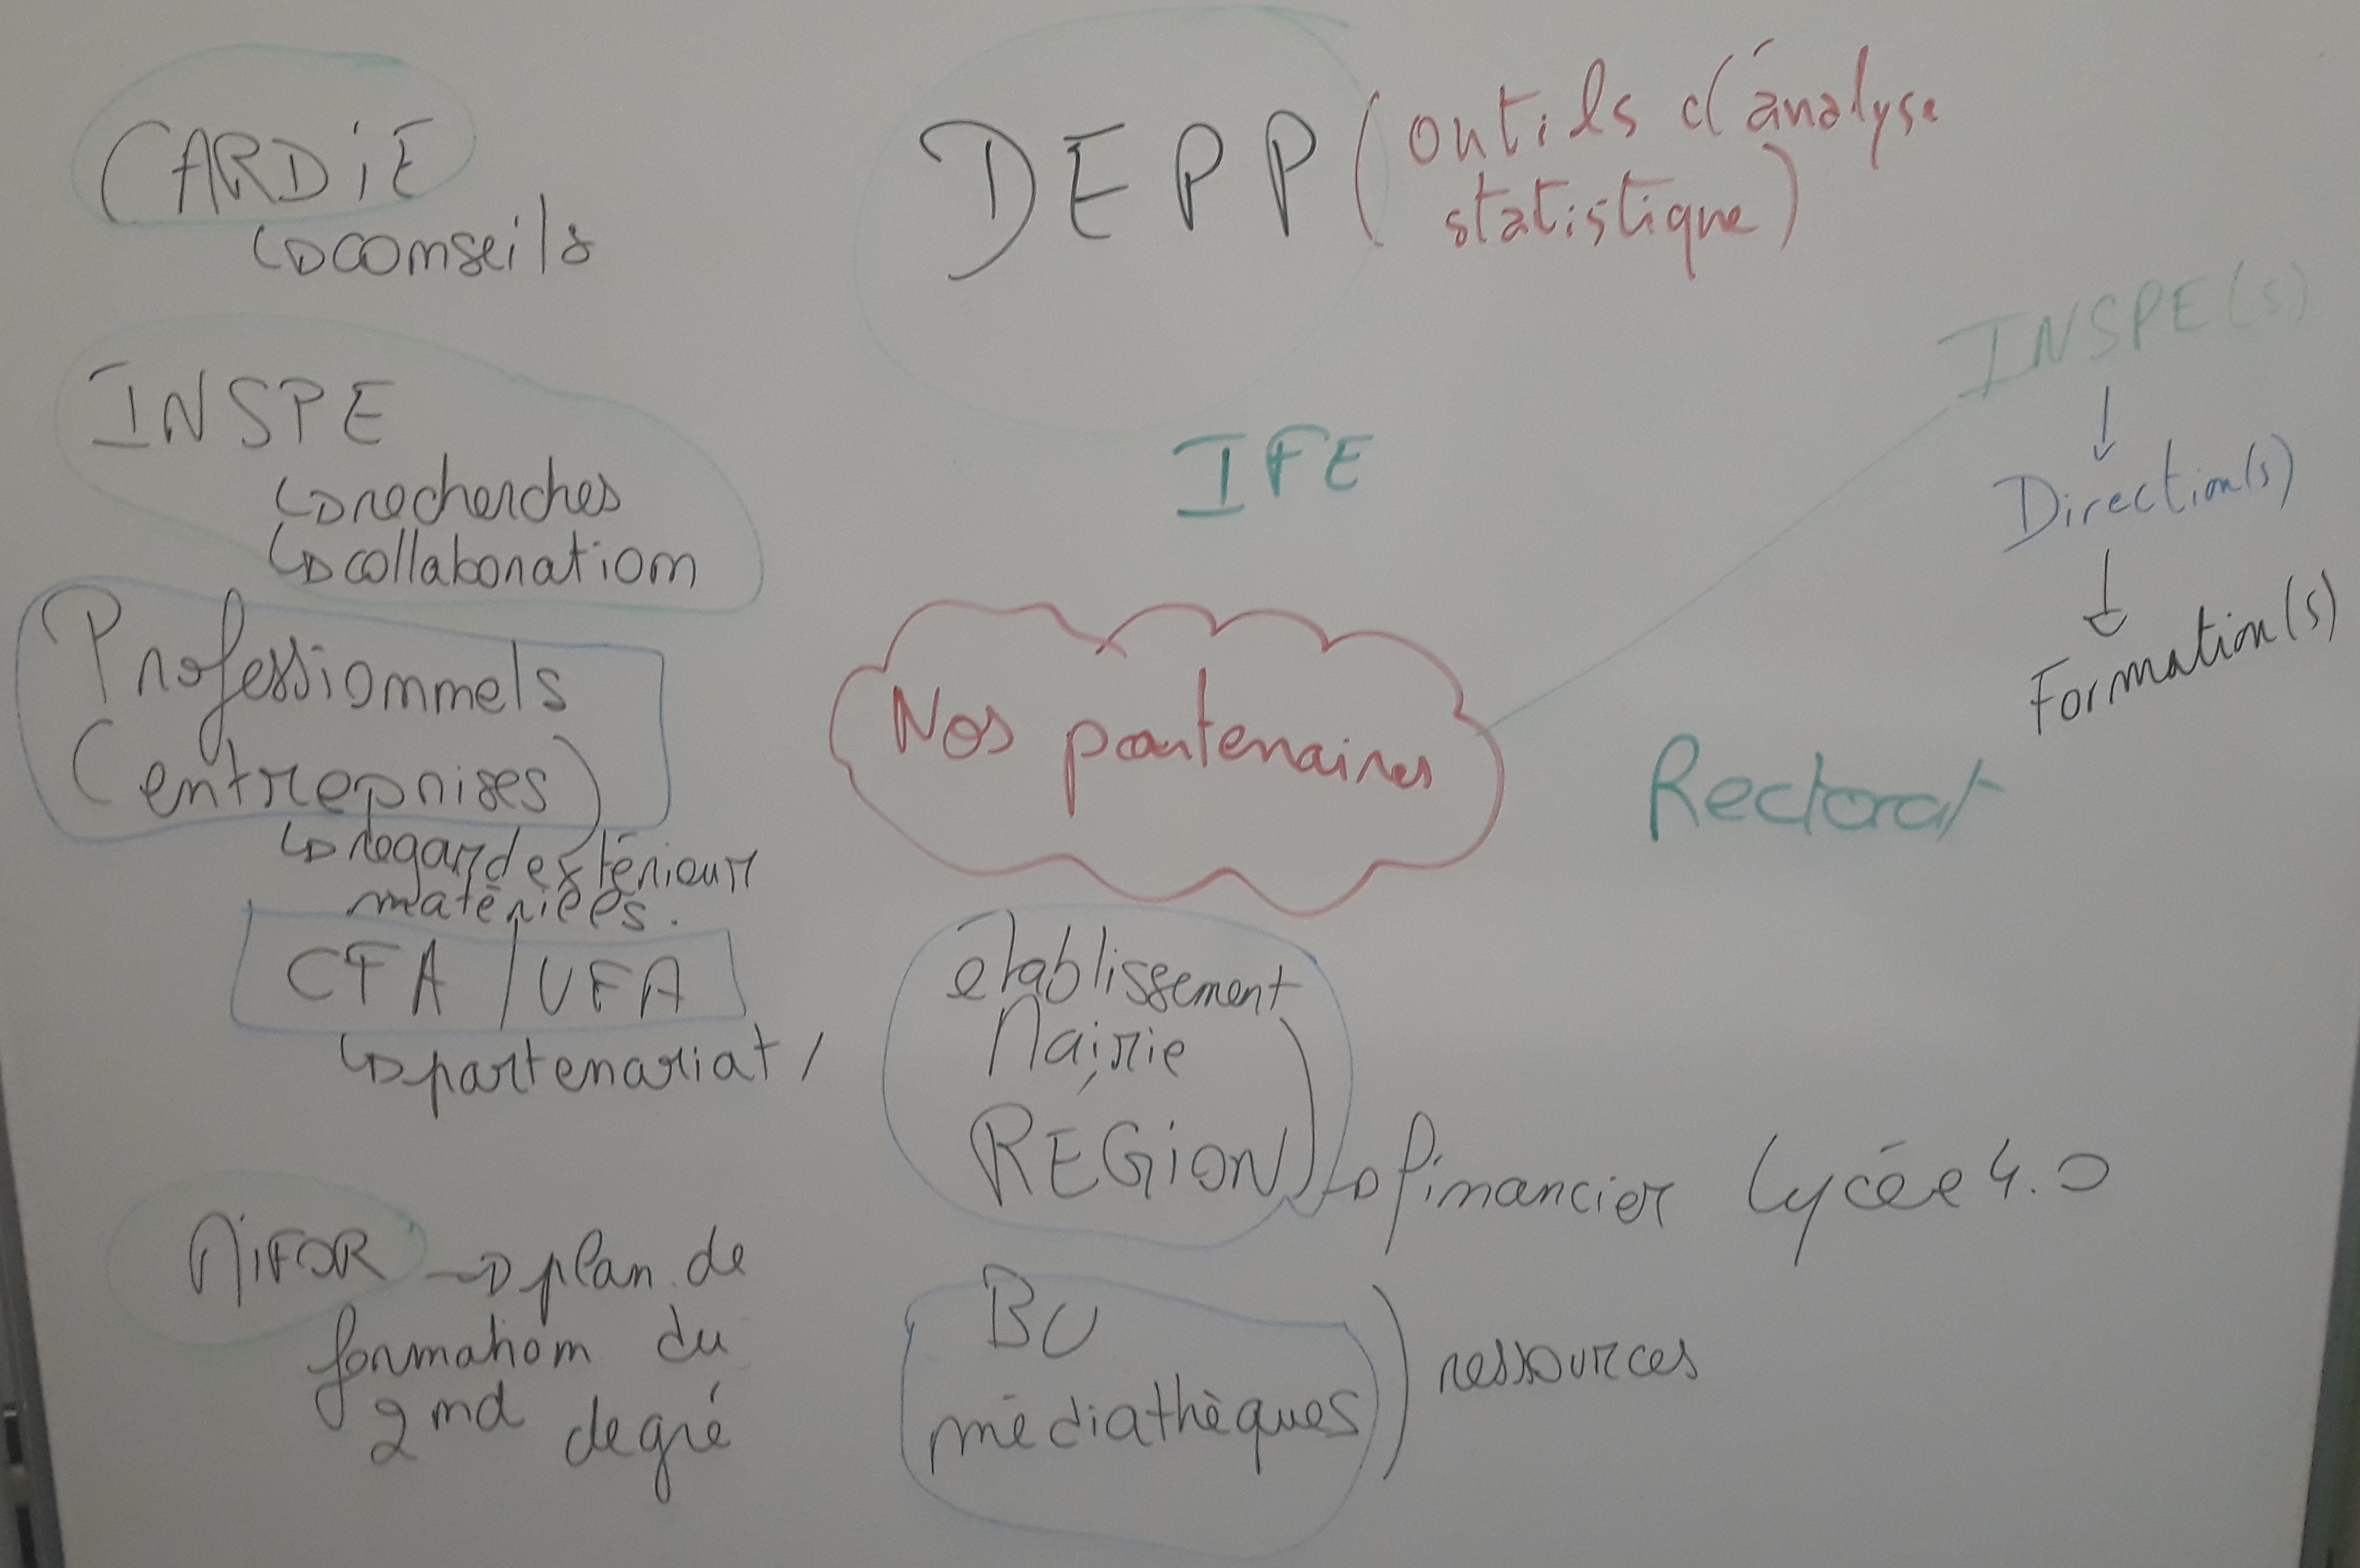 CARDiE
conseils
DEPP (outils d'analyse
statistique)
INSPE
recherches
collaboration
IFE
INSPE(s)
Direction(s)
Formation(s)
Professionnels
(entreprises)
regard extérieur
matériels.
Nos partenaires
Rectorat
CFA / UFA
partenariat /
établissement
Mairie
REGION) financier Lycée 4.0
MiFOR plan de
formation du
2nd degré
BU
médiathèques) ressources